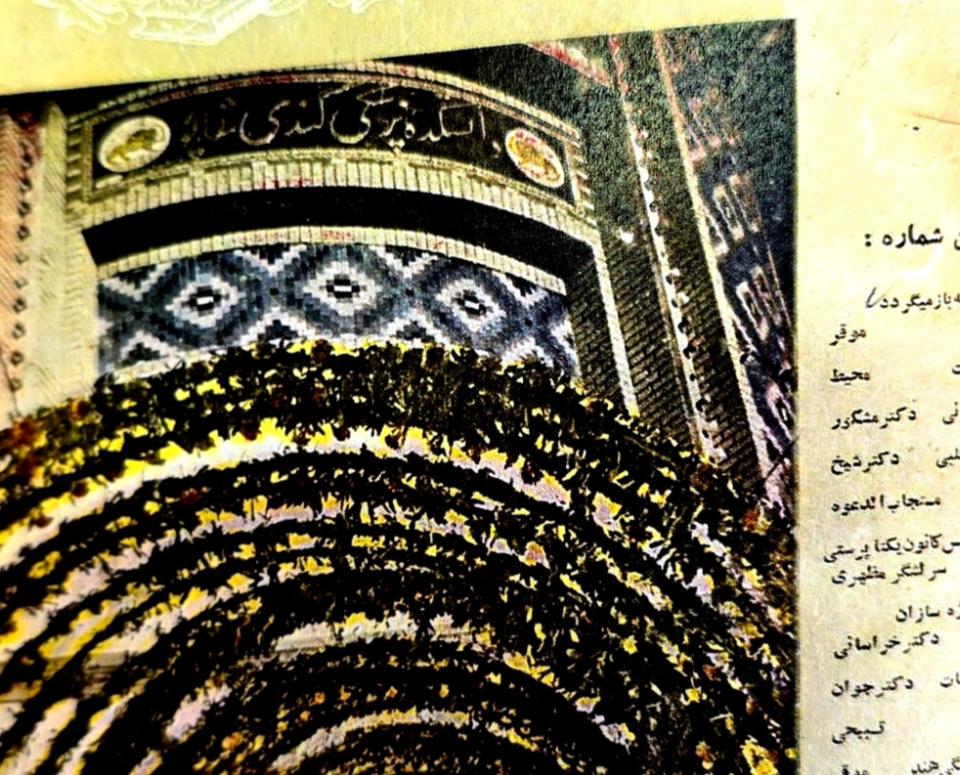 دانشکدهٔ پزشکی گندی شاپور
شماره :
بازمیگردد
موقر
محیط
دکتر مشکور
دکتر شیخ
مستجاب الدعوه
کانون یکتا پرستی
سرلشگر مظهری
سازان
دکتر خراسانی
دکتر جوان
تسبیحی
هند موقر